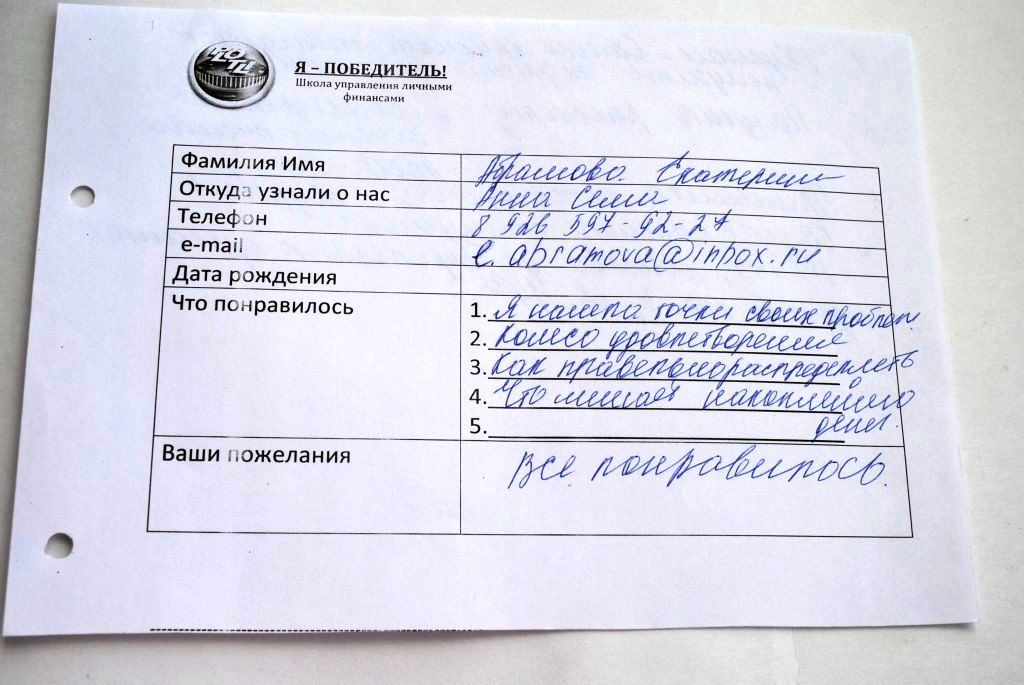 Я – ПОБЕДИТЕЛЬ!
Школа управления личными
финансами
Фамилия Имя Абрамова Екатерина
Откуда узнали о нас Анна
Телефон 8 926 597-92-27
e-mail e.abramova@inbox.ru
Дата рождения
Что понравилось
1. Я нашла точки своих проблем.
2. Колесо удовлетворения
3. Как правильно распределить
4. Что мешает
5. денег.
Ваши пожелания Все понравилось.